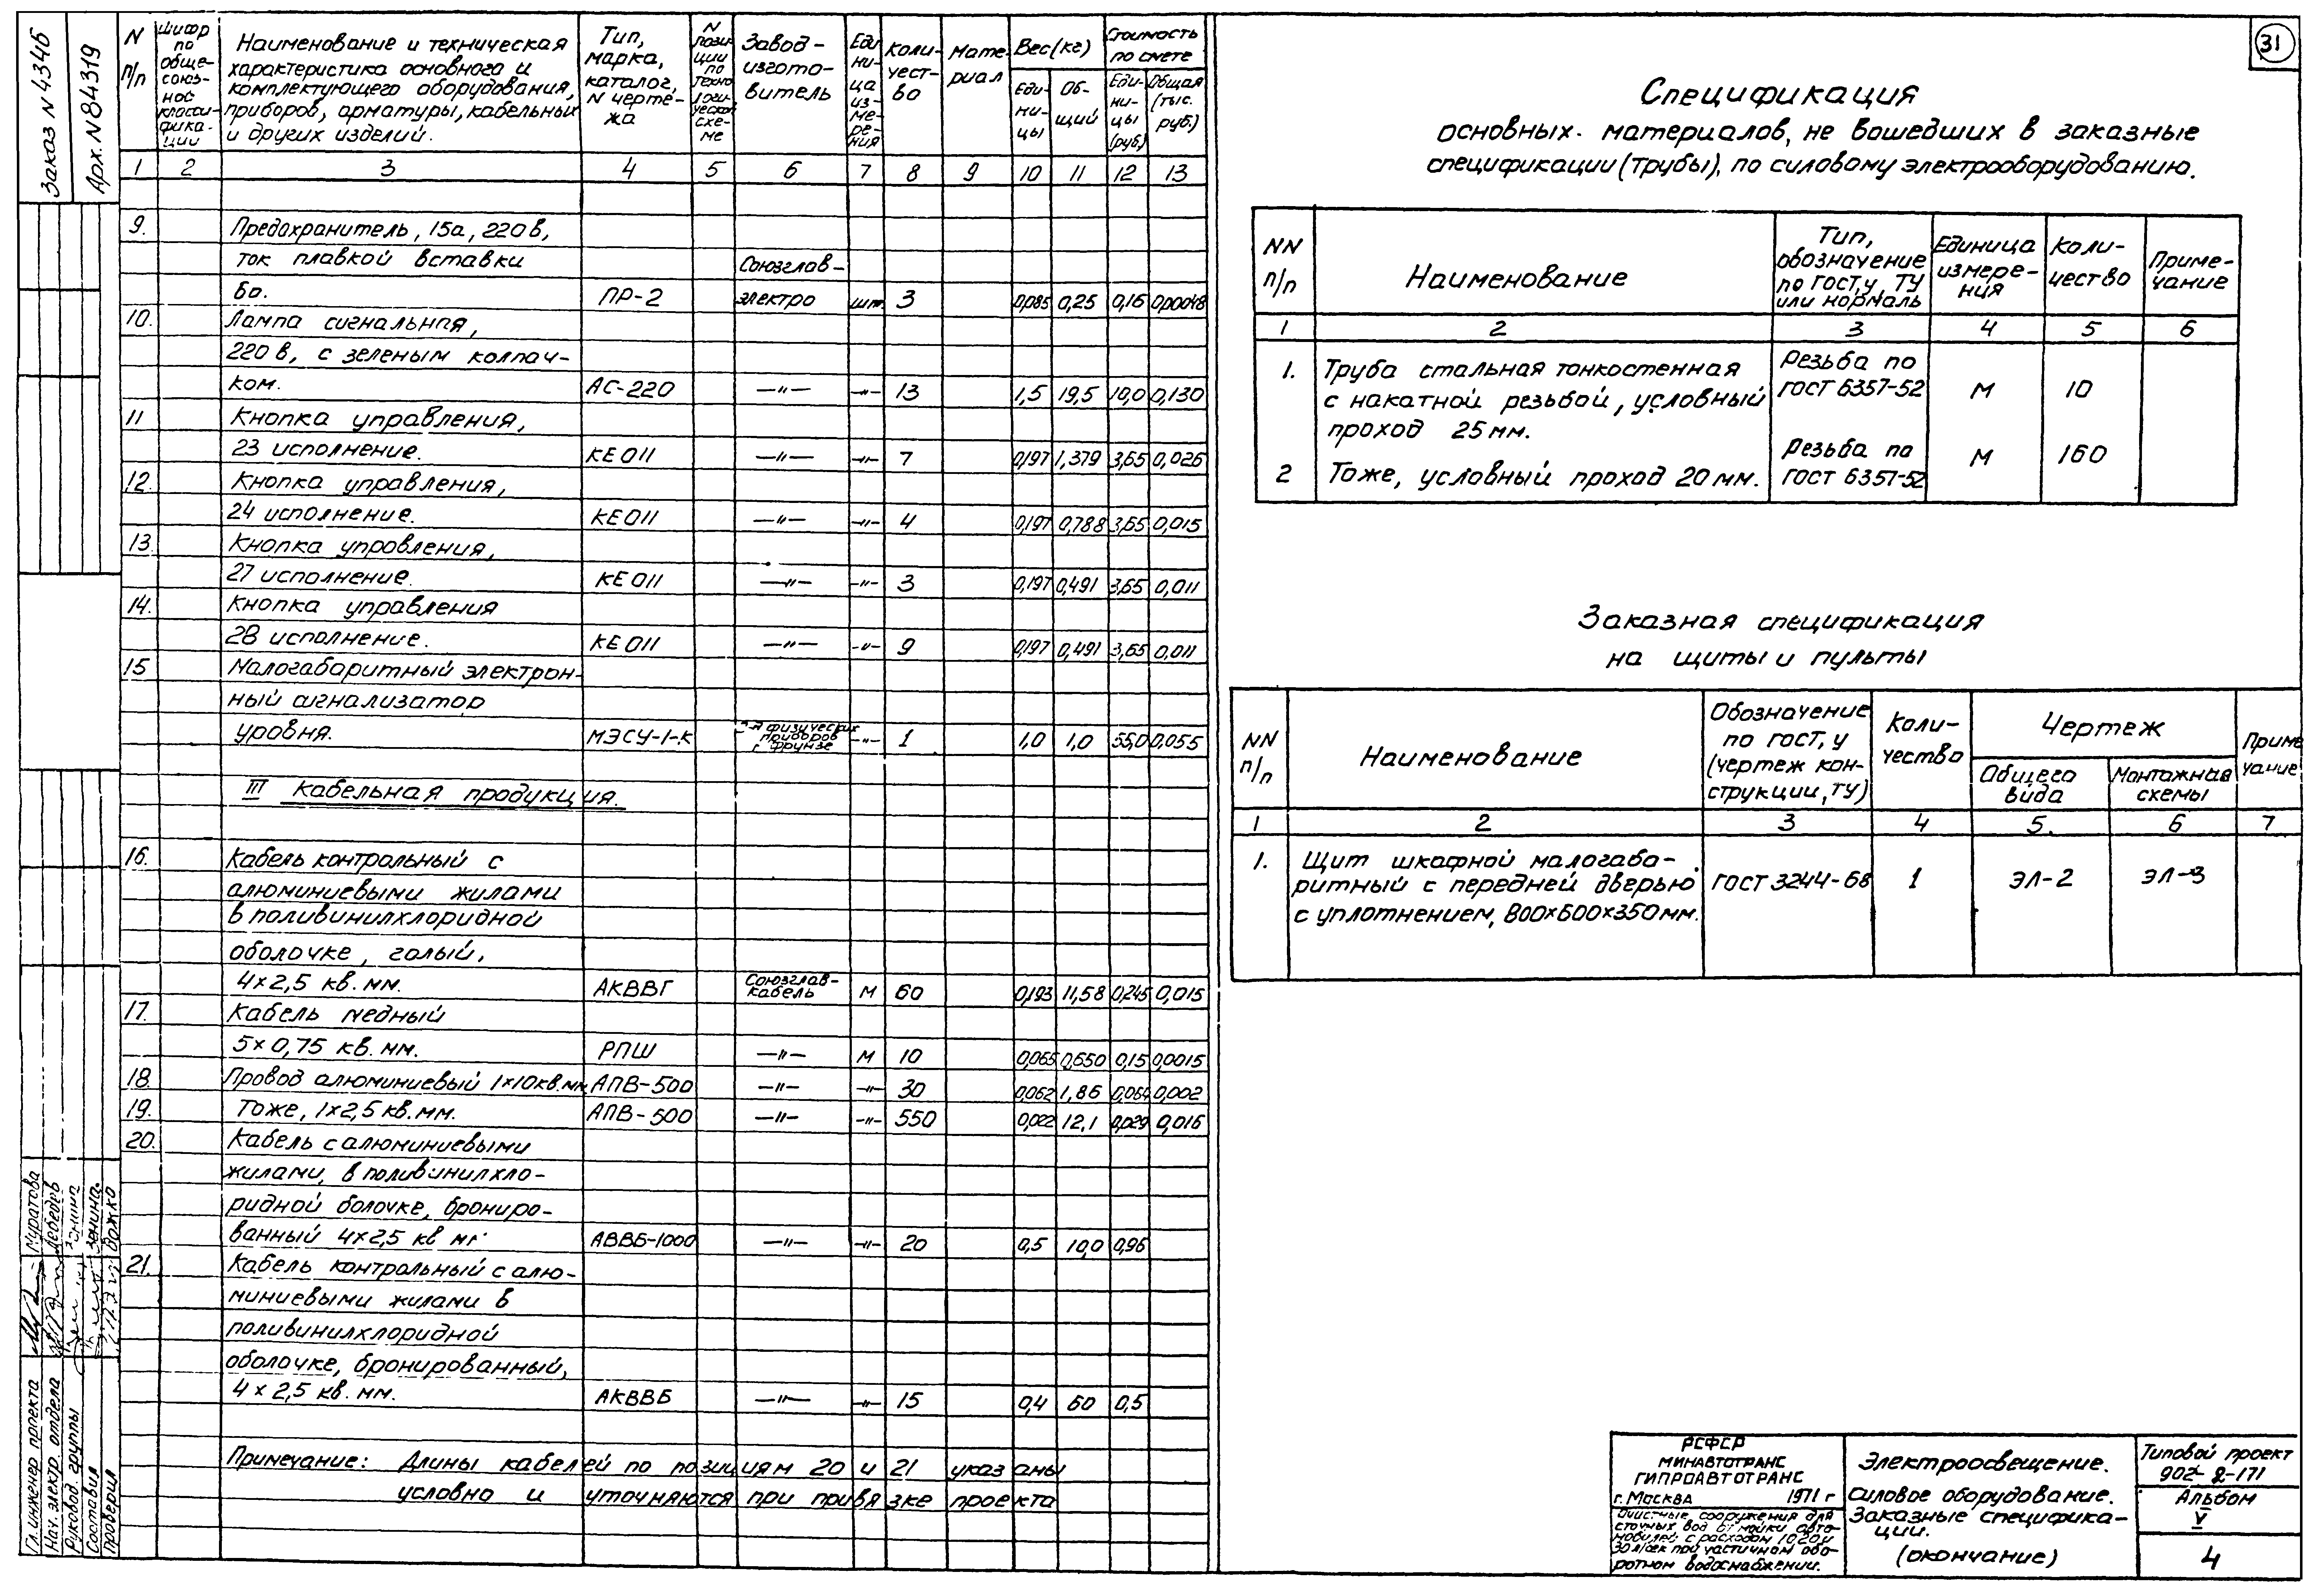 Заказ N 4346
Арх. N 84319
N п/п
Шифр по обще-союз-ной класси-фика-ции
Наименование и техническая
характеристика основного и
комплектующего оборудования,
приборов, арматуры, кабельных
и других изделий.
Тип, марка, каталог, N черте-жа
N пози-ции по техно логи-ческой схе-ме
Завод-изгото-витель
Еди ни-ца из-ме-ре-ния
Коли-чест-во
Мате-риал
Вес (кг)
Еди-ни-цы
Об-щий
Стоимость по смете
Еди-ни-цы (руб.)
Общая (тыс. руб.)
1 2 3 4 5 6 7 8 9 10 11 12 13
9. Предохранитель, 15а, 220в,
ток плавкой вставки Союзглав-
6а. ПР-2 электро шт. 3 0,085 0,25 0,16 0,00048
10. Лампа сигнальная,
220 в, с зеленым колпач-
ком. АС-220 —"— —"— 13 1,5 19,5 10,0 0,130
11 Кнопка управления,
23 исполнение. КЕ 011 —"— —"— 7 0,197 1,379 3,65 0,026
12. Кнопка управления,
24 исполнение. КЕ 011 —"— —"— 4 0,197 0,788 3,65 0,015
13. Кнопка управления,
27 исполнение. КЕ 011 —"— —"— 3 0,197 0,491 3,65 0,011
14. Кнопка управления
28 исполнение. КЕ 011 —"— —"— 9 0,197 0,491 3,65 0,011
15 Малогабаритный электрон-
ный сигнализатор
уровня. МЭСУ-1-К физических приборов г. Фрунзе —"— 1 1,0 1,0 55,0 0,055
III Кабельная продукция.
16. Кабель контрольный с
алюминиевыми жилами
в поливинилхлоридной
оболочке, голый,
4×2,5 кв. мм. АКВВГ Союзглав-кабель М 60 0,193 11,58 0,245 0,015
17. Кабель медный
5×0,75 кв. мм. РПШ —"— М 10 0,065 0,650 0,15 0,0015
18. Провод алюминиевый 1×10 кв.мм. АПВ-500 —"— —"— 30 0,062 1,86 0,064 0,002
19. Тоже, 1×2,5 кв. мм. АПВ-500 —"— —"— 550 0,022 12,1 0,029 0,016
20. Кабель с алюминиевыми
жилами, в поливинилхло-
ридной болочке, брониро-
ванный 4×2,5 кв мм АВВБ-1000 —"— —"— 20 0,5 10,0 0,96
21. Кабель контрольный с алю-
миниевыми жилами в
поливинилхлоридной
оболочке, бронированный,
4×2,5 кв. мм. АКВВБ —"— —"— 15 0,4 60 0,5
Примечание: Длины кабелей по позициям 20 и 21 указаны
условно и уточняются при привязке проекта
Гл. инженер проекта Муратова
Нач. электр. отдела Лебедев
Руковод. группы Зонин
Составил Зенина
Проверил Божко
31
Спецификация
основных материалов, не вошедших в заказные
спецификации (трубы), по силовому электрооборудованию.
NN п/п
Наименование
Тип, обозначение по ГОСТ, у, ТУ или нормаль
Единица измере-ния
Коли-чество
Приме-чание
1 2 3 4 5 6
1. Труба стальная тонкостенная Резьба по
с накатной резьбой, условный ГОСТ 6357-52 М 10
проход 25 мм.
Резьба по
2 Тоже, условный проход 20 мм. ГОСТ 6357-52 М 160
Заказная спецификация
на щиты и пульты
NN п/п
Наименование
Обозначение по ГОСТ, у (чертеж кон-струкции, ТУ)
Коли-чество
Чертеж
Общего вида
Монтажная схемы
Приме чание
1 2 3 4 5. 6 7
1. Щит шкафной малогаба-
ритный с передней дверью ГОСТ 3244-68 1 ЭЛ-2 ЭЛ-3
с уплотнением, 800×600×350 мм.
РСФСР
МИНАВТОТРАНС
ГИПРОАВТОТРАНС
г. Москва 1971 г
Очистные сооружения для
сточных вод от мойки авто-
мобилей с расходом 10, 20 и
30 л/сек при частичном обо-
ротном водоснабжении.
Электроосвещение.
Силовое оборудование.
Заказные специфика-
ции.
(окончание)
Типовой проект
902-2-171
Альбом
V
4